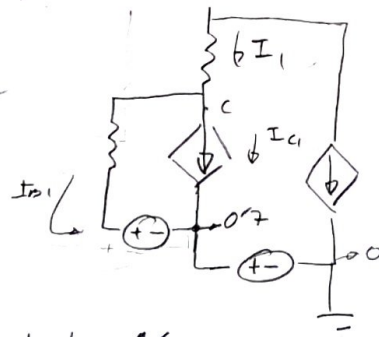 I1
c
Ic1
IB1
+ -
0.7
+
+ -
0